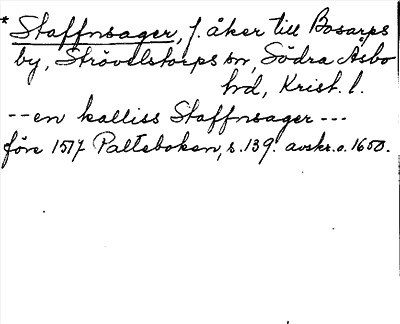 * Staffnsager, f. åker till Bosarps
by, Strövelstorps sn, Södra Åsbo
hd, Krist. l.
-- en kalliss Staffnsager ---
före 1517 Palteboken, s. 139. avskr. o. 1600.